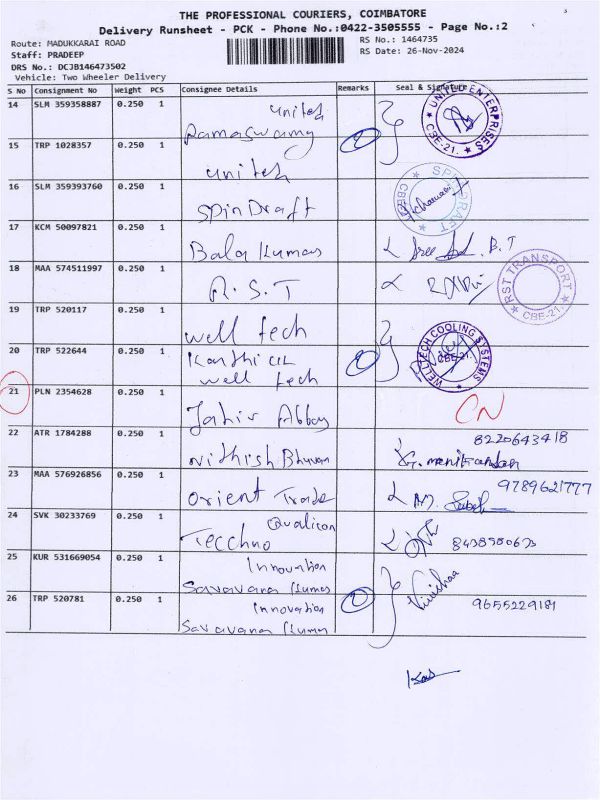 THE PROFESSIONAL COURIERS, COIMBATORE
Delivery Runsheet - PCK - Phone No.:0422-3505555 - Page No.:2
Route: MADUKKARAI ROAD RS No.: 1464735
Staff: PRADEEP RS Date: 26-Nov-2024
DRS No.: DCJB146473502
Vehicle: Two Wheeler Delivery
S No Consignment No Weight PCS Consignee Details Remarks Seal & Signature
14 SLM 359358887 0.250 1 united
Ramaswamy 2 UNITED ENTERPRISES CBE-21.
15 TRP 1028357 0.250 1
united
16 SLM 359393760 0.250 1 SPIN DRAFT
Spin Draft
17 KCM 50097821 0.250 1
Bala Kumar Sree B.T
18 MAA 574511997 0.250 1
R.S.T RST TRANSPORT CBE-21.
19 TRP 520117 0.250 1
well tech
20 TRP 522644 0.250 1 2 WELLTECH COOLING SYSTEMS CBE-21.
well tech
21 PLN 2354628 0.250 1
Jahir Abbas CN
22 ATR 1784288 0.250 1 8220643418
Nithish Bhuvan G. Manikandan
23 MAA 576926856 0.250 1 9789621777
Orient Trade
24 SVK 30233769 0.250 1 Qualicon
Tecchno
25 KUR 531669054 0.250 1 Innovation
Saravana Kumar
26 TRP 520781 0.250 1 Innovation 2 9655229181
Saravana Kumar